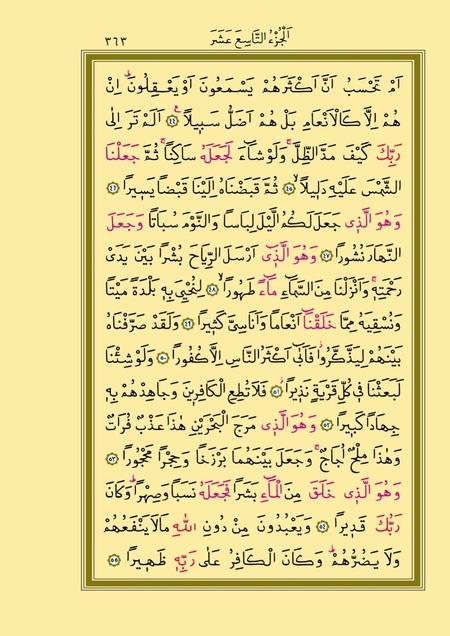 اَلْجُزْءُ التَّاسِعَ عَشَرَ ٣٦٣
اَمْ تَحْسَبُ اَنَّ اَكْثَرَهُمْ يَسْمَعُونَ اَوْ يَعْقِلُونَۜ اِنْ
هُمْ اِلَّا كَالْاَنْعَامِ بَلْ هُمْ اَضَلُّ سَب۪يلًا۟ ﴿٤٤﴾ اَلَمْ تَرَ اِلٰى
رَبِّكَ كَيْفَ مَدَّ الظِّلَّۚ وَلَوْ شَٓاءَ لَجَعَلَهُ سَاكِنًاۚ ثُمَّ جَعَلْنَا
الشَّمْسَ عَلَيْهِ دَل۪يلًاۙ ﴿٤٥﴾ ثُمَّ قَبَضْنَاهُ اِلَيْنَا قَبْضًا يَس۪يرًا ﴿٤٦﴾
وَهُوَ الَّذ۪ي جَعَلَ لَكُمُ الَّيْلَ لِبَاسًا وَالنَّوْمَ سُبَاتًا وَجَعَلَ
النَّهَارَ نُشُورًا ﴿٤٧﴾ وَهُوَ الَّذ۪ٓي اَرْسَلَ الرِّيَاحَ بُشْرًا بَيْنَ يَدَيْ
رَحْمَتِه۪ۚ وَاَنْزَلْنَا مِنَ السَّمَٓاءِ مَٓاءً طَهُورًاۙ ﴿٤٨﴾ لِنُحْيِيَ بِه۪ بَلْدَةً مَيْتًا
وَنُسْقِيَهُ مِمَّا خَلَقْنَٓا اَنْعَامًا وَاَنَاسِيَّ كَث۪يرًا ﴿٤٩﴾ وَلَقَدْ صَرَّفْنَاهُ
بَيْنَهُمْ لِيَذَّكَّرُواۘ فَاَبٰٓى اَكْثَرُ النَّاسِ اِلَّا كُفُورًا ﴿٥٠﴾ وَلَوْ شِئْنَا
لَبَعَثْنَا ف۪ي كُلِّ قَرْيَةٍ نَذ۪يرًاۘ ﴿٥١﴾ فَلَا تُطِعِ الْكَافِر۪ينَ وَجَاهِدْهُمْ بِه۪
جِهَادًا كَب۪يرًا ﴿٥٢﴾ وَهُوَ الَّذ۪ي مَرَجَ الْبَحْرَيْنِ هٰذَا عَذْبٌ فُرَاتٌ
وَهٰذَا مِلْحٌ اُجَاجٌۚ وَجَعَلَ بَيْنَهُمَا بَرْزَخًا وَحِجْرًا مَحْجُورًا ﴿٥٣﴾
وَهُوَ الَّذ۪ي خَلَقَ مِنَ الْمَٓاءِ بَشَرًا فَجَعَلَهُ نَسَبًا وَصِهْرًاۜ وَكَانَ
رَبُّكَ قَد۪يرًا ﴿٥٤﴾ وَيَعْبُدُونَ مِنْ دُونِ اللّٰهِ مَا لَا يَنْفَعُهُمْ
وَلَا يَضُرُّهُمْۜ وَكَانَ الْكَافِرُ عَلٰى رَبِّه۪ ظَه۪يرًا ﴿٥٥﴾